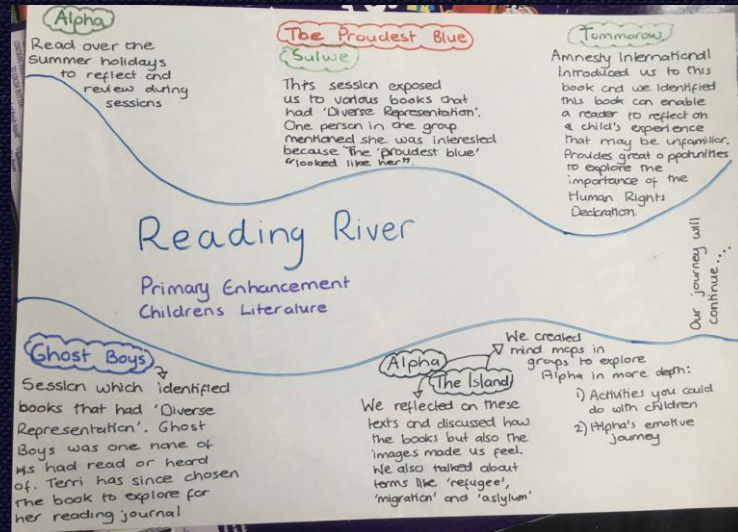 Alpha
Read over the
Summer holidays
to reflect and
review during
sessions
The Proudest Blue
Sulwe
This session exposed
us to various books that
had 'Diverse Representation'.
One person in the group
mentioned she was interested
because The 'proudest blue'
"looked like her".
Tommorow
Amnesty International
introduced us to this
book and we identified
this book can enable
a reader to reflect on
a child's experience
that may be unfamiliar.
Provides great oppotunities
to explore the
importance of the
Human Rights
Declaration.
Reading River
Primary Enhancement
Childrens Literature
Our journey will
continue....
Ghost Boys
Session which identified
books that had 'Diverse
Representation'. Ghost
Boys was one none of
us had read or heard
of. Terri has since chosen
the book to explore for
her reading journal
Alpha
The Island
We reflected on these
texts and discussed how
the books but also the
images made us feel.
We also talked about
terms like 'refugee',
'migration' and 'aslylum'
We created
mind maps in
groups to explore
Alpha in more depth:
1) Activities you could
do with children
2) Alpha's emotive
journey